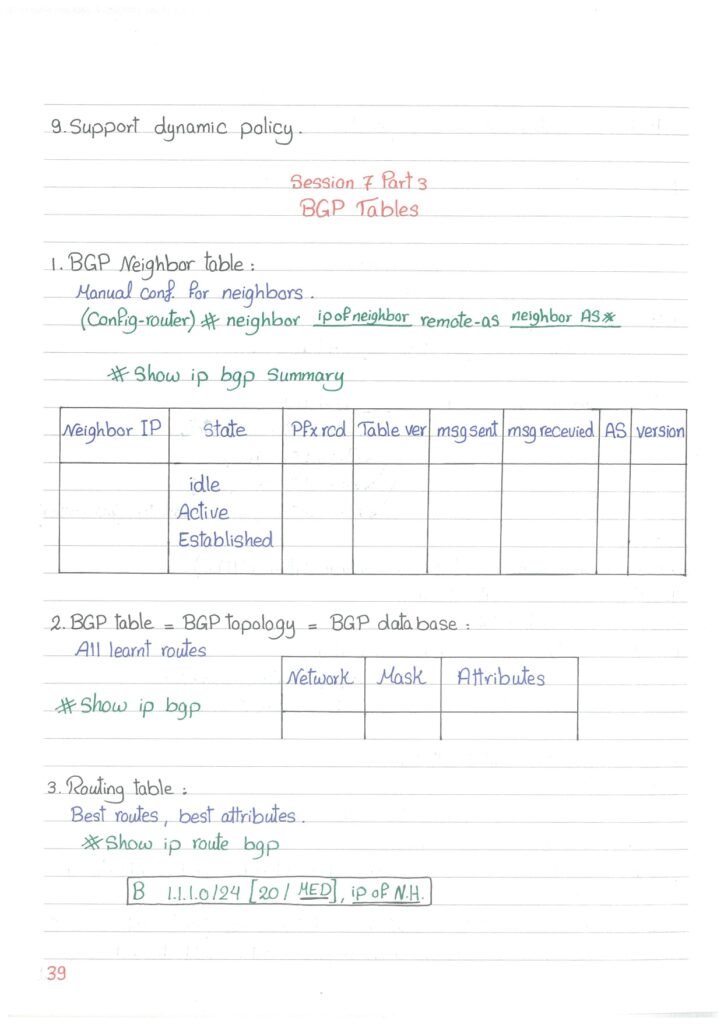 9. Support dynamic policy.
Session 7 Part 3
BGP Tables
1. BGP Neighbor table :
Manual Conf. for neighbors.
(Config-router) # neighbor ip of neighbor remote-as neighbor AS*
# Show ip bgp Summary
Neighbor IP State Pfx rcd Table ver msg sent msg recevied AS version
idle
Active
Established
2. BGP table = BGP topology = BGP database :
All learnt routes
Network Mask Attributes
# Show ip bgp
3. Routing table :
Best routes, best attributes.
# Show ip route bgp
B 1.1.1.0/24 [20/ MED], ip of N.H.
39